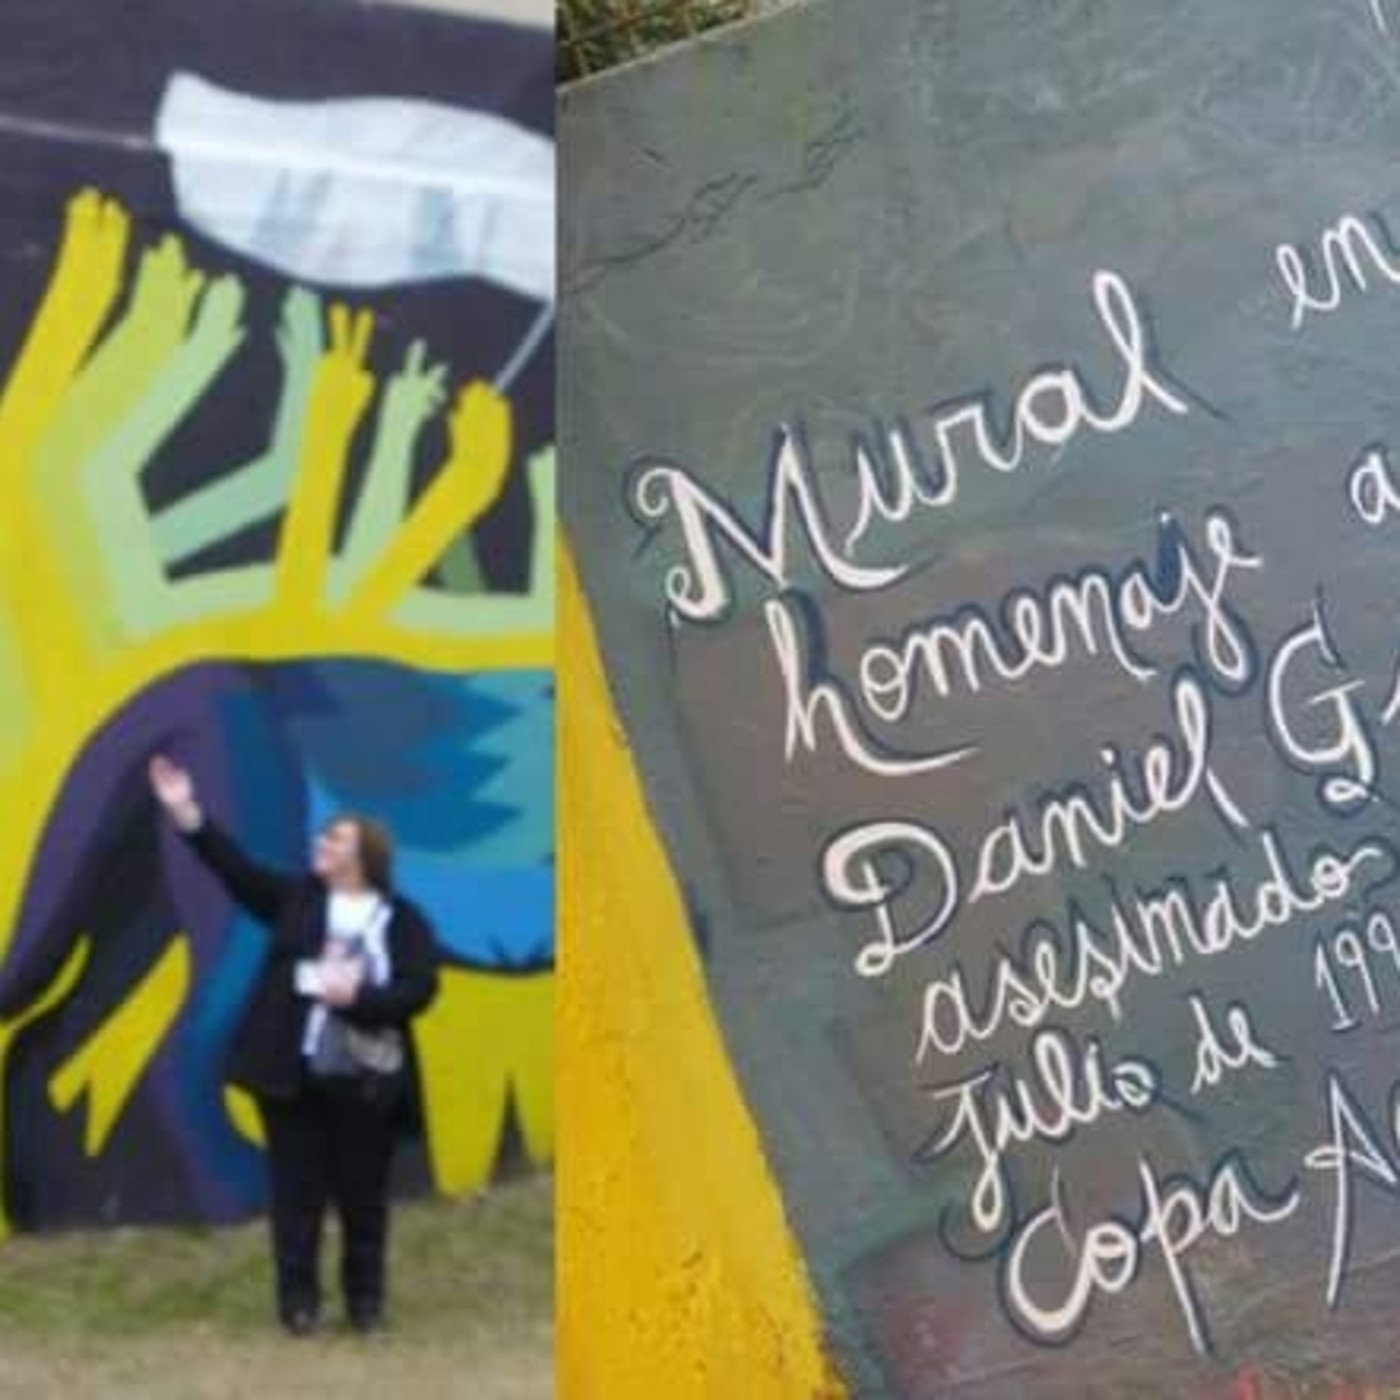 Mural en
homenaje a
Daniel G
asesinado
Julio de 199
Copa A